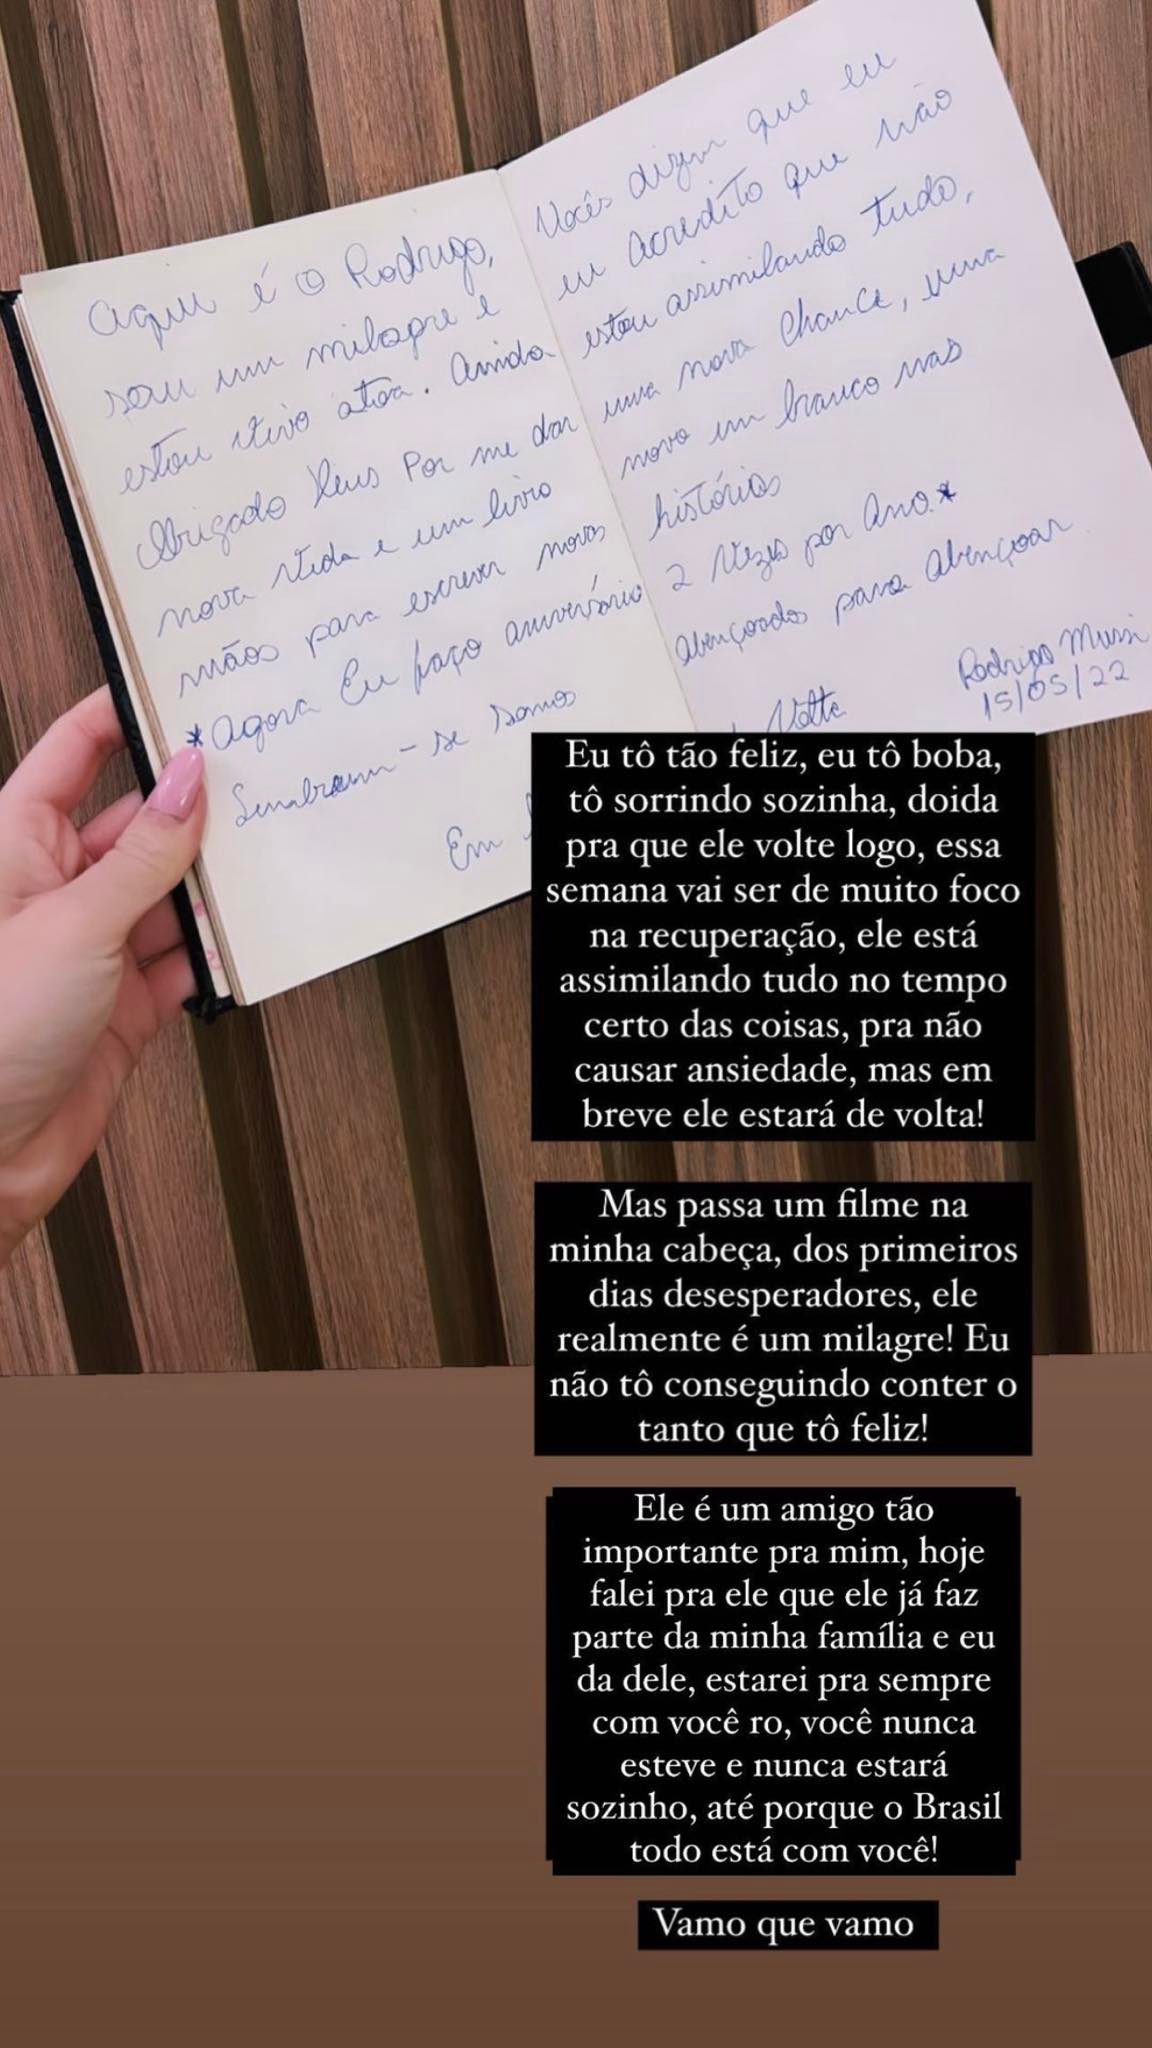 Aqui é o Rodrigo, Vocês dizem que eu
sou um milagre e eu acredito que não
estou vivo atoa. Ainda estou assimilando tudo,
Obrigado Deus Por me dar uma nova chance, uma
nova vida e um livro novo em branco nas
mãos para escrever novas histórias
*Agora Eu faço aniversário 2 Vezes por Ano.*
Lembrem-se somos Abençoados para Abençoar
Em Volta
Rodrigo Mussi
15/05/22
Eu tô tão feliz, eu tô boba,
tô sorrindo sozinha, doida
pra que ele volte logo, essa
semana vai ser de muito foco
na recuperação, ele está
assimilando tudo no tempo
certo das coisas, pra não
causar ansiedade, mas em
breve ele estará de volta!
Mas passa um filme na
minha cabeça, dos primeiros
dias desesperadores, ele
realmente é um milagre! Eu
não tô conseguindo conter o
tanto que tô feliz!
Ele é um amigo tão
importante pra mim, hoje
falei pra ele que ele já faz
parte da minha família e eu
da dele, estarei pra sempre
com você ro, você nunca
esteve e nunca estará
sozinho, até porque o Brasil
todo está com você!
Vamo que vamo